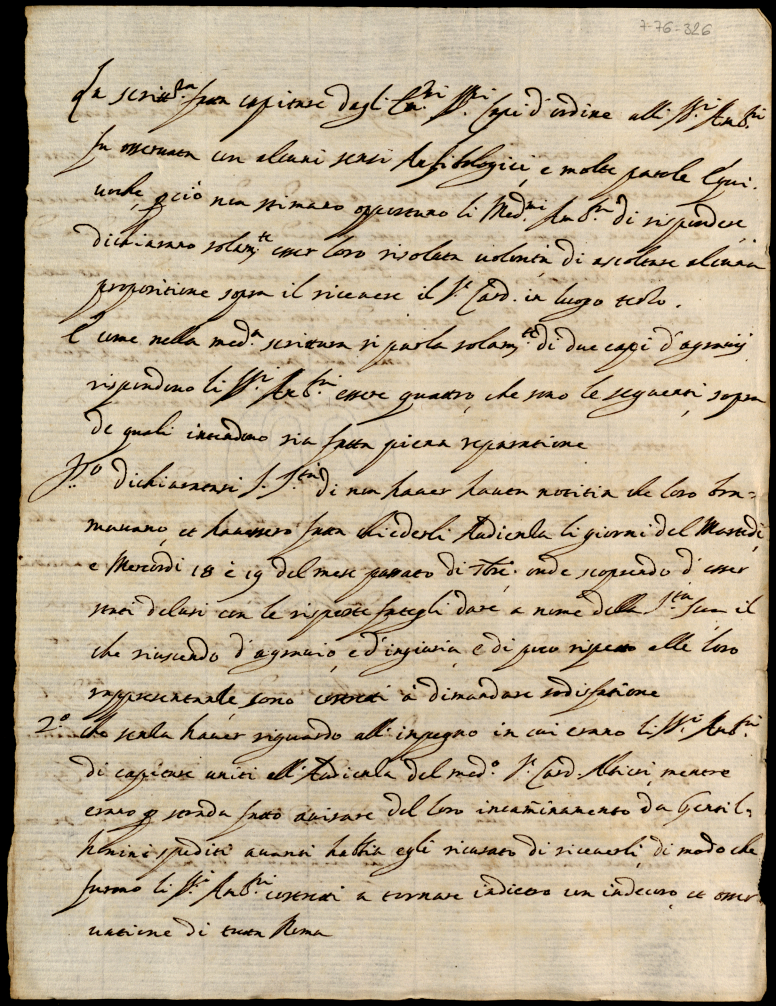 7-76-326
La scritt.ra fatta capitare dagli Em.mi SS.ri Capi d'ordine alli SS.ri Amb.ri
fu osservata con alcuni sensi Anfibologici, e molte parole Equi-
voche, p ciò non stimano opportuno li Med.mi Amb.ri di rispondere,
dichiarano solam.te esser loro risoluta volontà di ascoltare alcuna
propositione sopra il ricevere il S.r Card. in luogo terzo.
E come nella med.a scrittura si parla solam.te di due capi d'agravij
rispondono li SS.ri Amb.ri essere quattro, che sono le seguenti, sopra
de quali intendono sia fatta piena reparatione
P.o dichiaratasi S. S.tà di non haver havuta notitia che loro bra-
mavano, et havessero fatto chiederli Audienza li giorni del Martedì,
e Mercordì 18 è 19 del mese passato di 7bre. onde scoprendo d'esser
stati delusi con le risposte fattegli dare a nome della S.tà Sua il
che riuscendo d'agravio, e d'ingiuria, e di poco rispetto alle loro
rappresentanze sono costretti à dimandare sodisfatione
2.o che senza haver riguardo all'impegno in cui erano li SS.ri Amb.ri
di capitare uniti all'Audienza del med.o S.r Card. Altieri, mentre
erano p strada fatto avisare del loro incaminamento da Gentil-
homini spediti avanti habbia egli ricusato di riceverli, di modo che
furono li SS.ri Amb.ri costretti a tornare indietro con indecoro, et osser-
vatione di tutta Roma